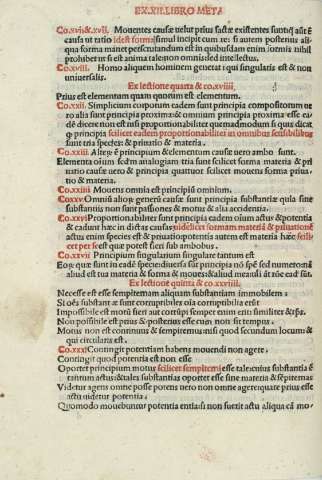 EX .XII. LIBRO META
Co.xvi & .xvii. Mouentes causæ uelut prius factæ existentes sunt: quæ autē
causa ut ratio idest forma simul incipit cum re: si autem posterius aliqua
forma manet perscrutandum est in quibusdam enim formis nihil
prohibet ut si est anima talem omnis sed intellectus.
Co.xviii. Homo aliquem hominem generat qui singularis est & non
uniuersalis.
Ex lectione quarta & co. xviiii.
Prius est elementum quam quorum est elementum.
Co.xxii. Simplicium corporum eadem sunt principia compositorum ue
ro alia sunt principia proximas & omnium principia proxima esse ea
dē dicere non est nisi proportionabiliter quemadmodum si quis dicat
q̧ principia scilicet eadem proportionabiliter in omnibus sensibilibus
sunt tria species & priuatio & materia.
Co.xxiii. principium & elementum causæ uero ambo sunt.
Elementa oīum secdm analogiam tria sunt scilicet forma materia & pri
uatio causæ uero & principia quatuor scilicet causa mouens forma priua
tio & materia.
Co.xxiiii Mouens omnia est principiū omnium.
Coxxv. Omniū generū causæ sunt principia substantiæ quia sine
substantiis non sunt passiones & motus & aliæ substantiæ.
Co.xxvi Proportionabiliter sunt principia eadem oīum actus & potentia
& cadunt hæc in dictas causas uidelicet formam materiā & priuationē
actus enim est species & priuatio potentia autem est materia hæc scili
cet per se est quæ potest fieri sub ambobus.
Co.xxvii Principium singularium singulare tantum est
quæ sunt in eadē specie diuersa sunt principia nō spē sed numero
aliud est tua materia & forma & mouēs & aliud mea
Ex lectione quinta & co. xxviiii.
Necesse est esse sempiternam aliquam substantiam immobilem:
Si oēs substantiæ sunt corruptibiles oīa corruptibilia essēt
Impossibile est motū fieri aut corrūpi semper enim erit similiter &
Non possibile est prius & posterius esse cum non sit tempus.
Motus non est continuus & sempiternus nisi quod secundum locum: &
qui circularis est.
Co.xxx Contingit potentiam habens mouendi non agere.
Contingit quod potentia est non esse
Oportet principium motus scilicet sempiterni esse tale cuius substantia ē
tantum actus: & tales substantias oportet esse sine materia & sēpiternas
Videtur agens omne posse potens uero non omne agere quare prius esse
actu uidetur potentia
Quomodo mouebuntur potentia entia si non fuerit actu aliqua cā mo